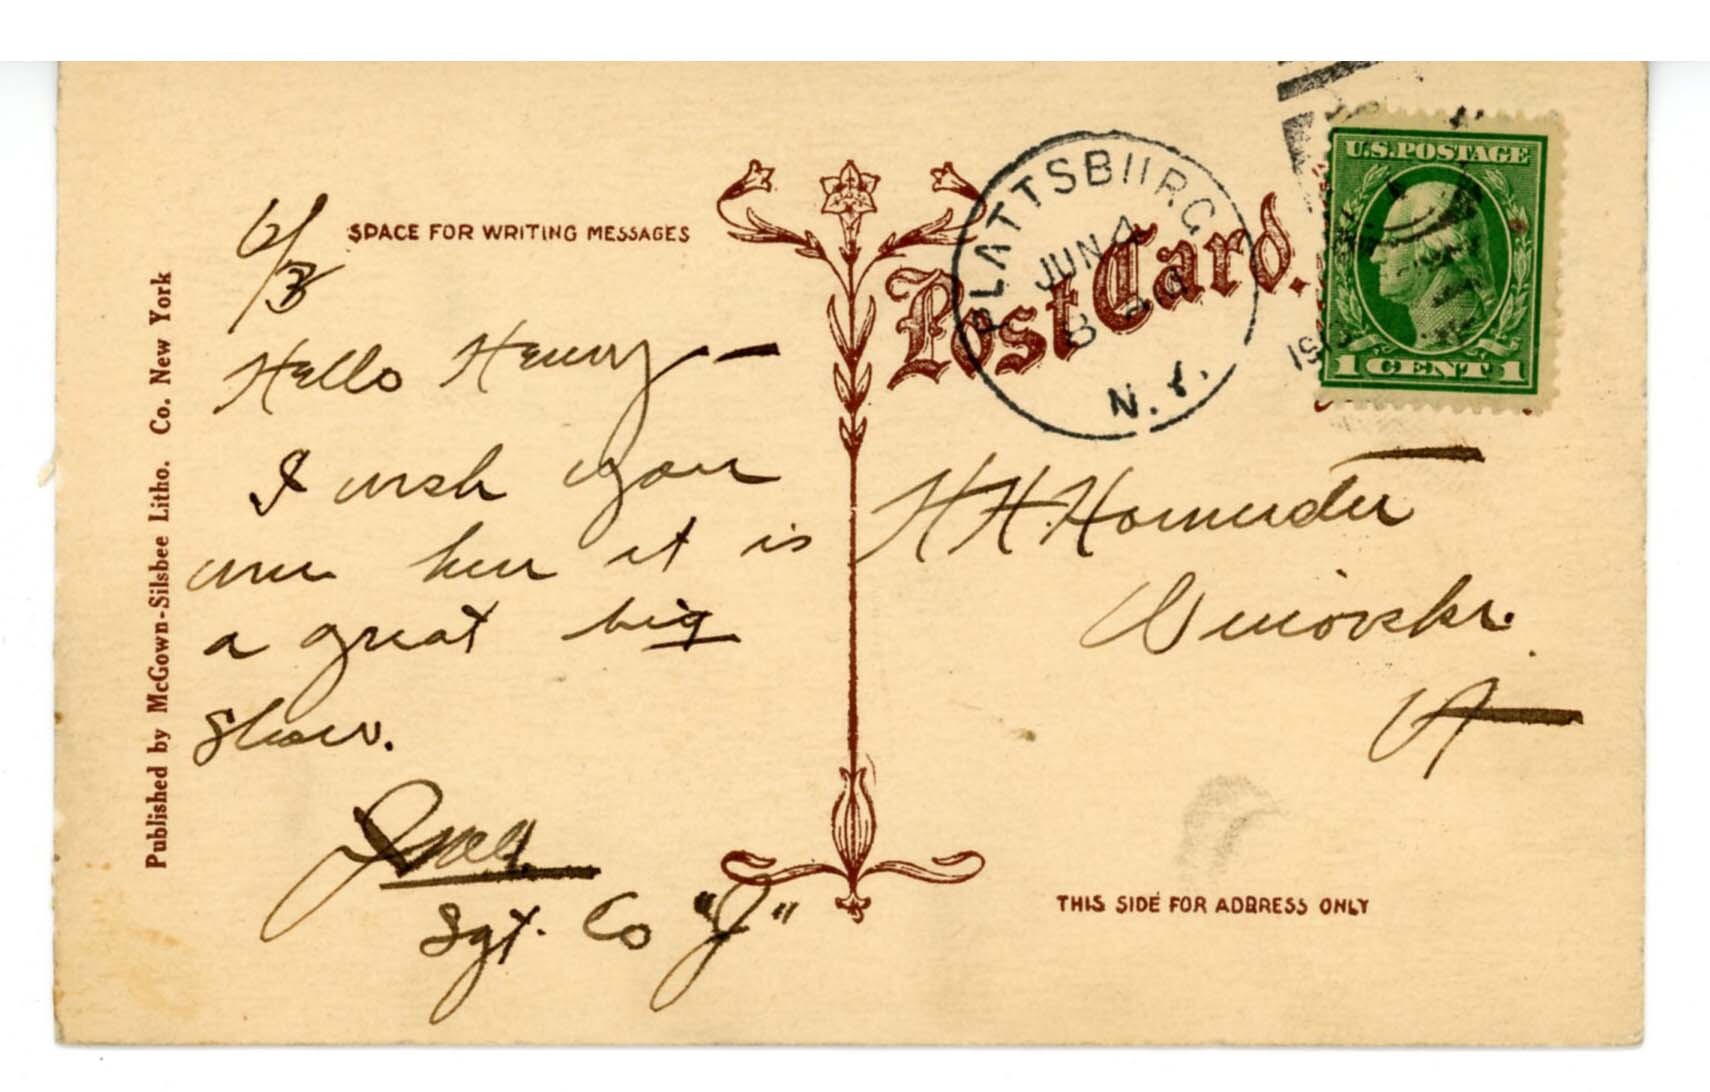 6/3
SPACE FOR WRITING MESSAGES
Hello Henry —
I wish you
were here it is
a great big
show.
Sgt. Co "J"
Published by McGown-Silsbee Litho. Co. New York
Post Card.
PLATTSBURG
JUN 4
8
N. Y.
U.S. POSTAGE
1 CENT 1
H H
Winooski.
Vt
THIS SIDE FOR ADDRESS ONLY